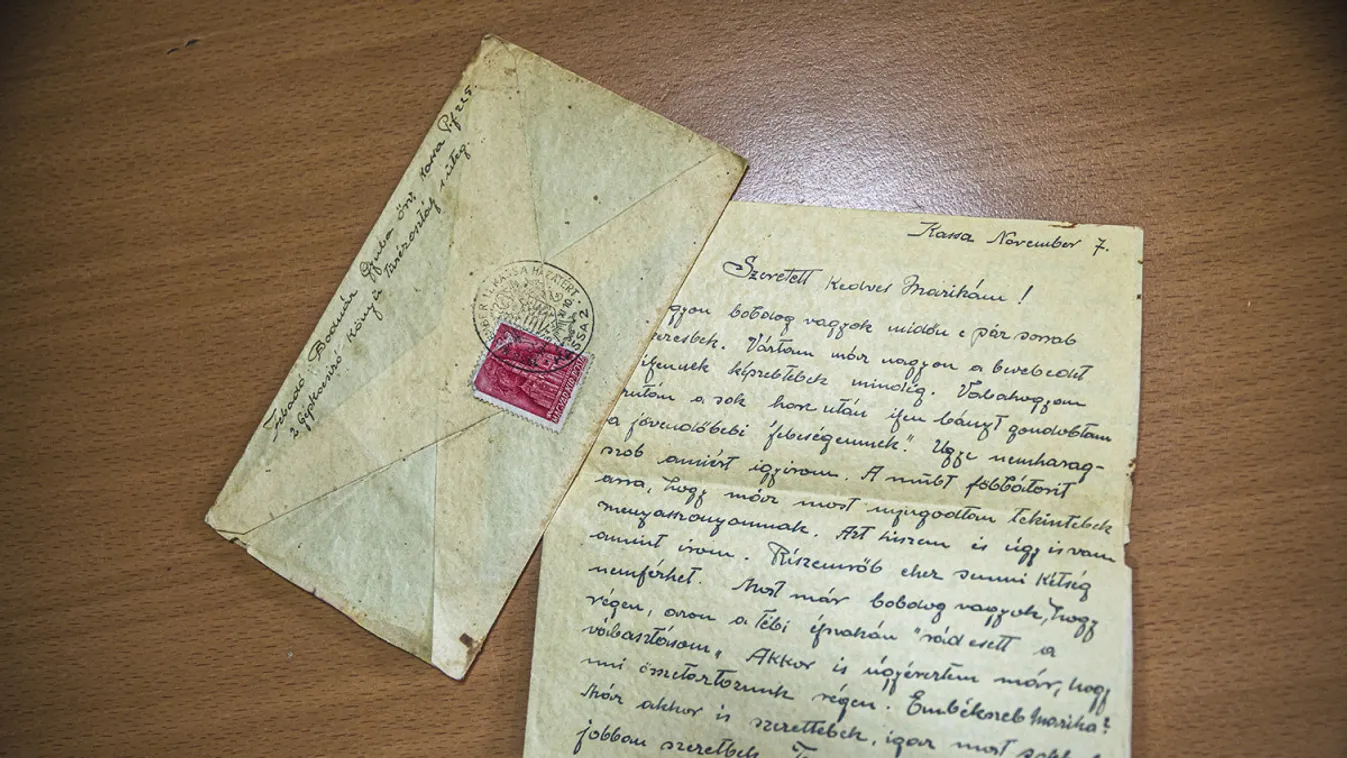 Feladó Bodnár Gyula őrv. Kassa Pf 225.
2 Gépkocsizó Könyű Tarézosztály 1 üteg.
KASSA HAZATÉRT
KASSA 2
MAGYAR KIR. POSTA
Kassa November 7.
Szeretett Kedves Marikám!
agyon boldog vagyok midőn e pár sorab
Vártam már nagyon a leveledet
ilyennek képzeltelek mindég. Valahogyan
a sok harc után ilyen lányt gondoltam
a jövendőbeli "feleségemnek". Ugye nemharag-
szol amiért igyirom. A múlt följbátorit
arra, hogy már most nyugodtan tekintelek
menyasszonyomnak. Azt hiszem is úgy is van
amint irom. Részemről ehez semmi kétség
nemférhet. Most már boldog vagyok, hogy
régen, azon a téli éjszakán "rád esett a
választásom" Akkor is úgyéreztem már, hogy
mi összetartozunk régen. Emlékszel Marika?
Már akkor is szerettelek, igaz most sokkal
jobban szeretlek.